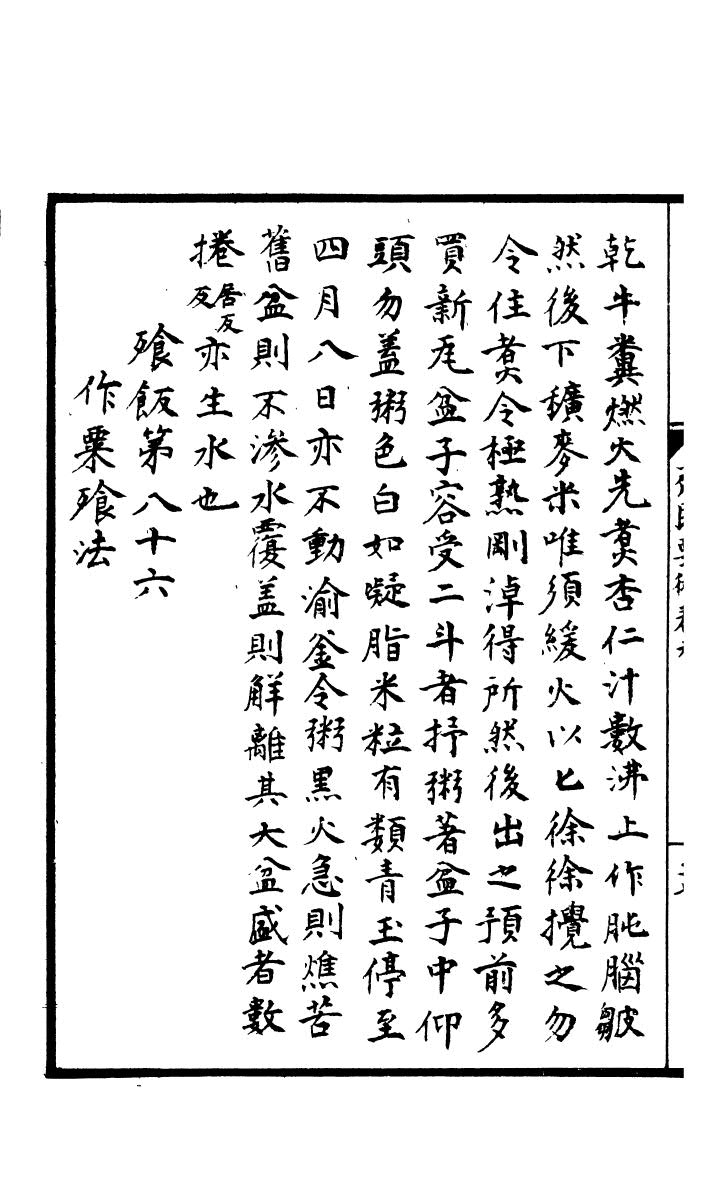 乾牛糞燃火先煑杏仁汁數沸上作肫腦皺
然後下穬麥米唯須緩火以匕徐徐攪之勿
令住煑令極熟剛淖得所然後出之預前多
買新瓦盆子容受二斗者抒粥著盆子中仰
頭勿蓋粥色白如凝脂米粒有類青玉停至
四月八日亦不動渝釜令粥黒火急則燋苦
舊盆則不滲水覆蓋則解離其大盆盛者數
捲居反亦生水也
飱飯第八十六
作粟飱法